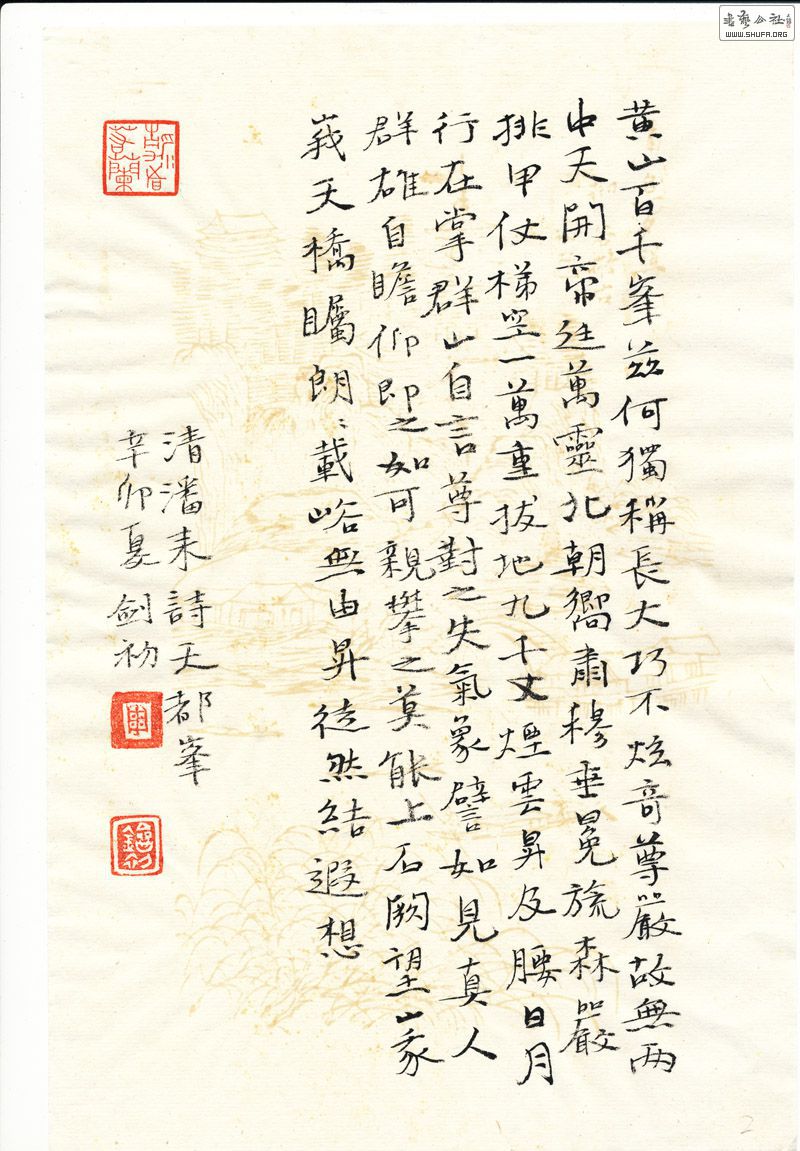 黄山百千峯茲何獨稱長大巧不炫奇尊嚴故無兩
中天開帝廷萬靈北朝嚮肅穆垂冕旒森嚴
排甲仗梯空一萬重拔地九千丈煙雲昇及腰日月
行在掌群山自言尊對之失氣象譬如見真人
群雄自瞻仰即之如可親攀之莫能上石闕望峩
峩天橋矚朗〻載峪無由昇徒然結遐想
清潘耒詩天都峯
辛卯夏 劍初
書藝公社
WWW.SHUFA.ORG
2